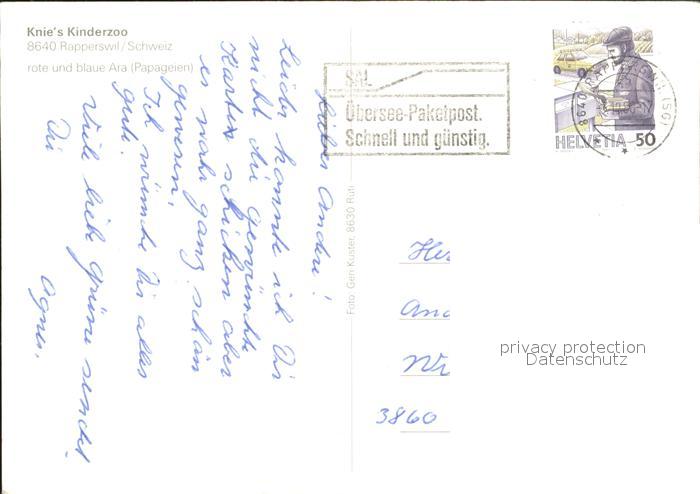 Knie's Kinderzoo
8640 Rapperswil/Schweiz
rote und blaue Ara (Papageien)
Lieber Andre!
Leider konnte ich Dir
nicht die gewünschte
Karten schicken aber
es wahr ganz schön
gewesen.
Ich wünsche Dir alles
gute.
Viele liebe Grüsse sendet
Dir
Agnes.
Foto: Geri Kuster, 8630 Rüti
SAL
Übersee-Paketpost.
Schnell und günstig.
8640 RAPPERSWIL (SG)
HELVETIA 50
Her
And
Wi
3860
privacy protection
Datenschutz